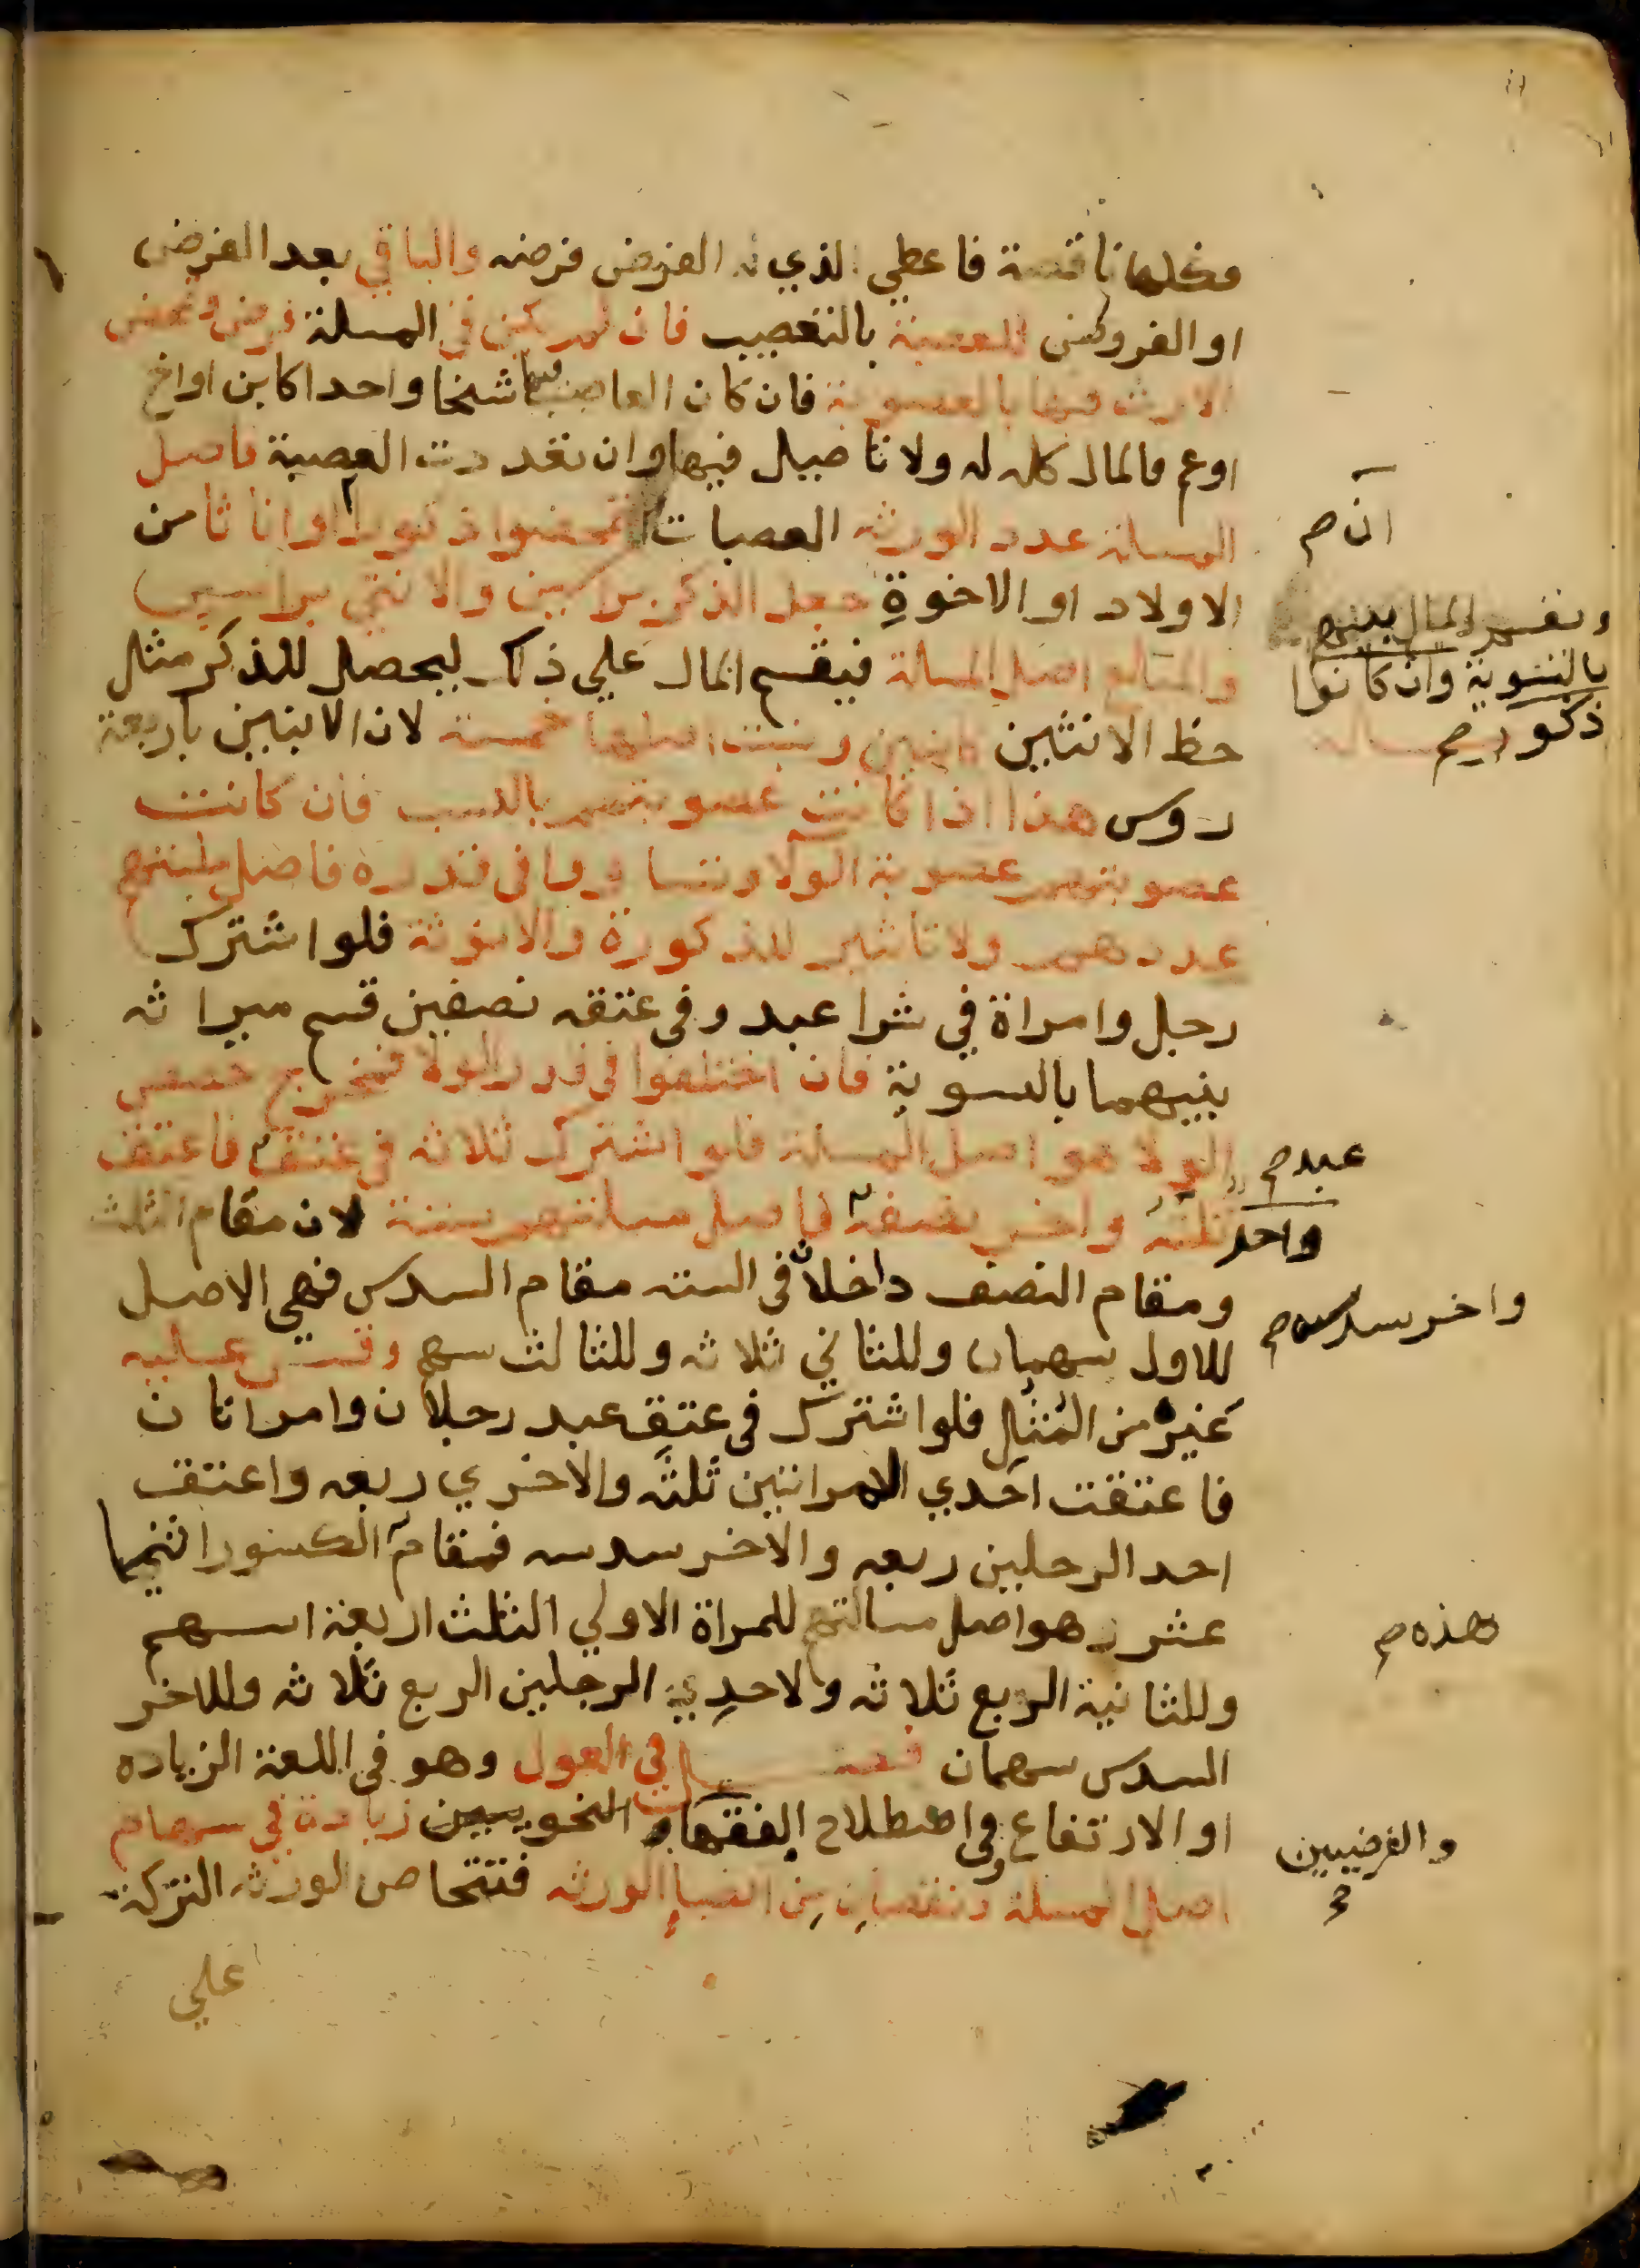 فكلها ناقصة فاعطي الذي له الفرض فرضه والباقي بعد الفرض
او الفروض للعصبة بالتعصيب فان لم يكن في المسلة فرض وتمحض
الارث فيها بالعصوبة فان كان العاصب فيها شخا واحدا كابن او اخ
او عم فالمال كله له ولا تاصيل فيها وان تعددت العصبة فاصل
المسلة عدد الورثه العصبات ان تمحضوا ذكورا او اناثا من
ان ص
الاولاد او الاخوةِ جعل الذكر براسين والانثي براس
ويقسم المال بينهم
بالتسوية وان كانوا
ذكور ص
والمبلغ اصل المسلة فيقسم المال علي ذلك ليحصل للذكر مثل
حظ الانثيين كابنين وبنت اصلها خمسة لان الابنين باربعة
روس هذا اذا كانت عصوبتهم بالنسب فان كانت
عصوبتهم عصوبة الولا وتساووا في قدره فاصل مسلتهم
عددهم ولا تاثير للذكورة والانوثة فلو اشترك
رجل وامراة في شرا عبد وفي عتقه نصفين قسم ميراثه
بينهما بالسوية فان اختلفوا في قدر الولا فمخرج حصص
الولا هو اصل المسلة فلو اشترك ثلاثه في عتق فاعتق
عبد ص
واحد
ثلثه واخر نصفه فاصل مسلتهم ستة لان مقام الثلث
ومقام النصف داخلان في السته مقام السدس فهي الاصل
واخر سدسه ص
للاول سهمان وللثاني ثلاثه وللثالث سهم وقس عليه
غيره من المثال فلو اشترك في عتق عبد رجلان وامراتان
فاعتقت احدي الامراتين ثلثه والاخري ربعه واعتقت
احد الرجلين ربعه والاخر سدسه فمقام الكسور اثنيا
عشر وهو اصل مسالتهم للمراة الاولي الثلث اربعة اسهم
هذه ص
وللثانية الربع ثلاثه ولاحدي الرجلين الربع ثلاثه وللاخر
السدس سهمان فصل في العول وهو في اللغة الزياده
او الارتفاع وفي اصطلاح الفقها و النحويين زيادة في سهام
والفرضيين
اصل المسلة ونقصان من انصبا الورثه فتتحاص الورثه التركة
علي